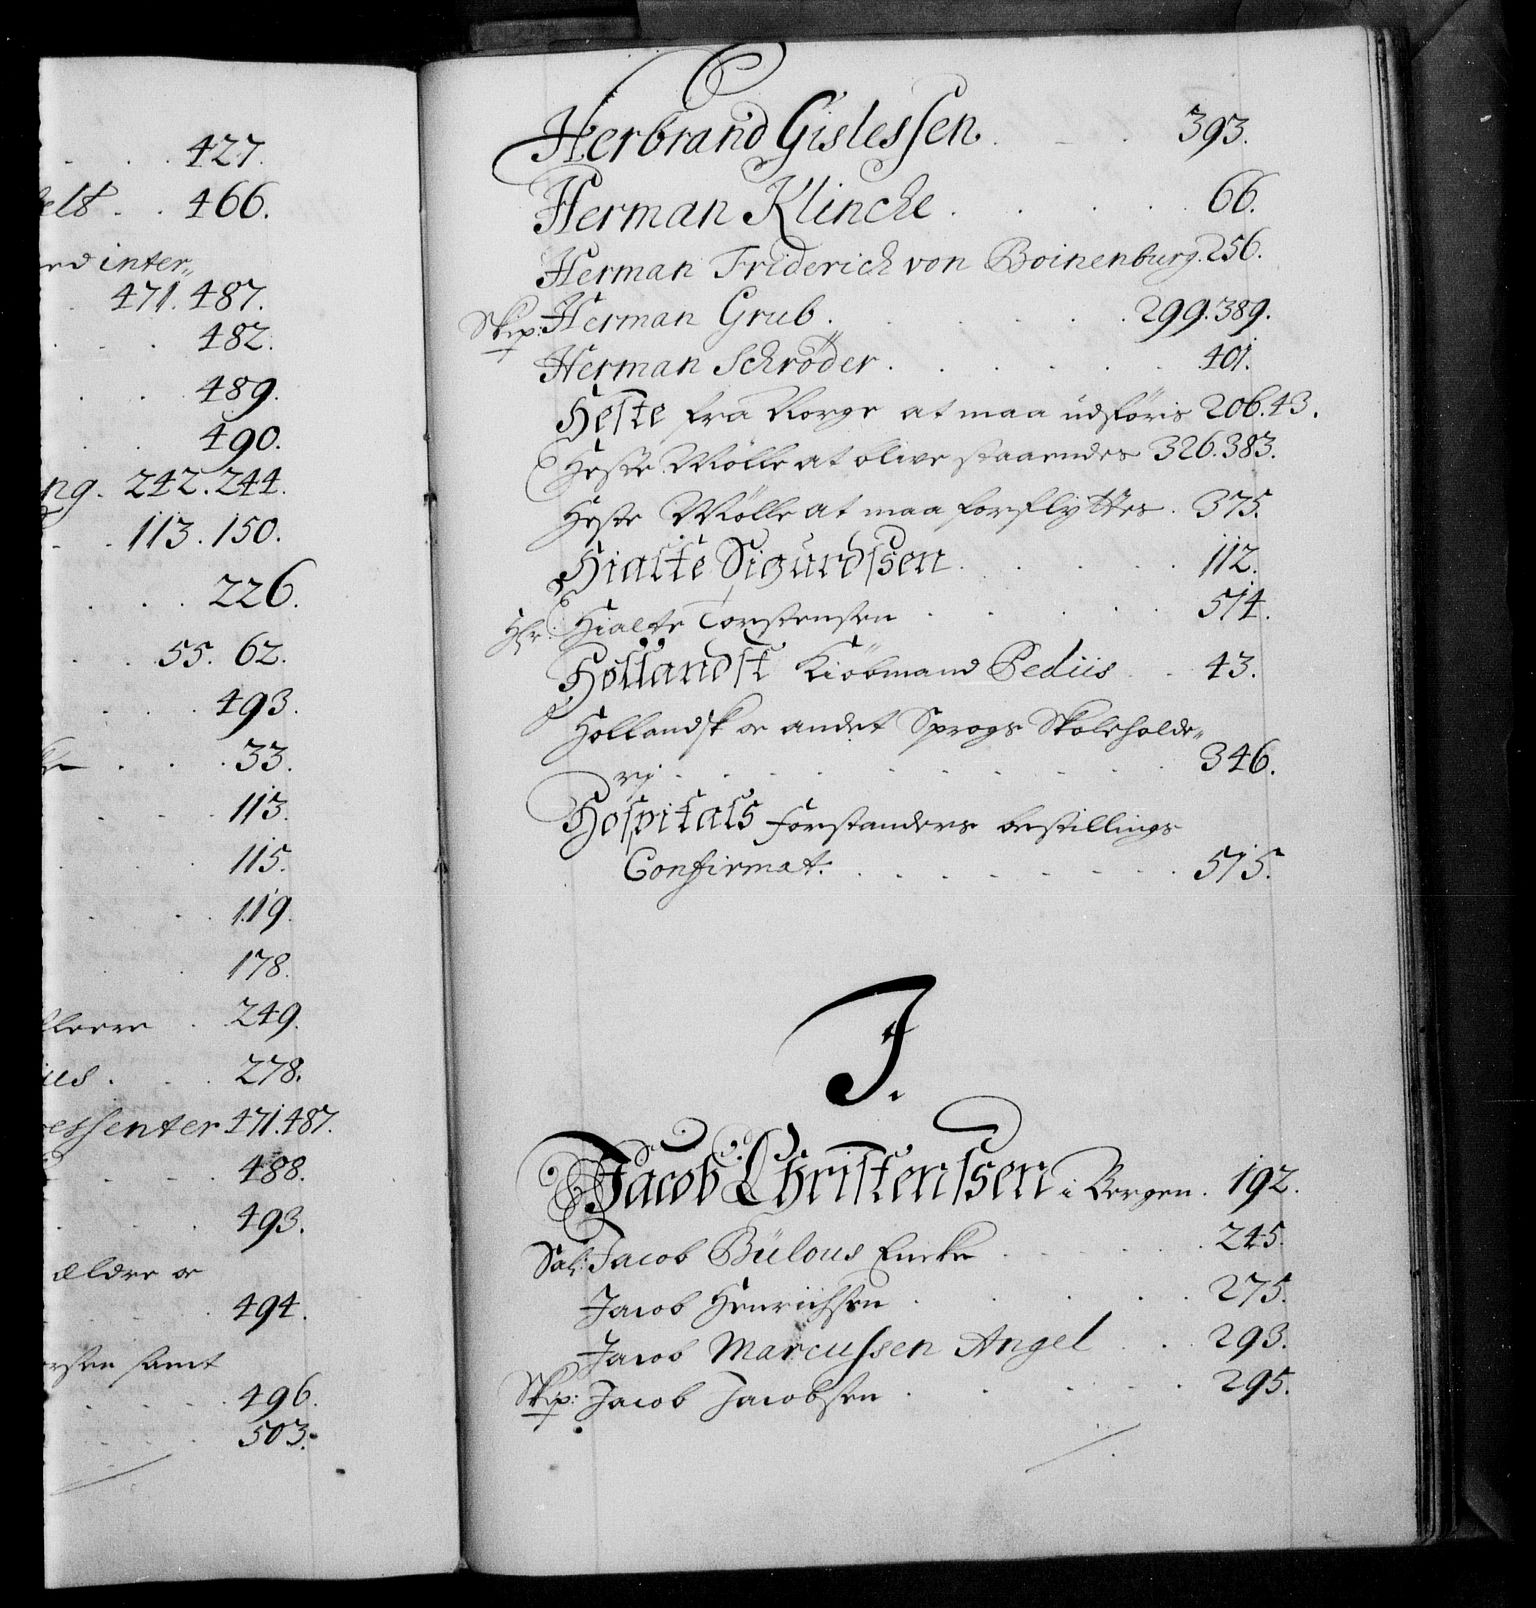 427.
466.
inter„
471. 487.
482.
489.
490.
ng. 242. 244.
113. 150.
226.
55. 62.
493.
33.
113.
115.
119.
178.
249.
278.
essenter 471. 487.
488.
493.
ældre oc
494.
samt
496.
503.
Herbrand Gislessen . . . 393.
Herman Klincke . . . . 66.
Herman Friderich von Boinenburg. 256.
Skip: Herman Grub . . . . 299. 389.
Herman Schrøder . . . . . 401.
Heste fra Norge at maa udføris 206. 43.
Heste Mølle at blive staaendes 326. 383.
Heste Mølle at maa forflyttes . 375.
Hialte Sigurdssen . . . . 112.
Hr: Hialte Torstensen . . . . 514.
Hollandst Kiøbmand Pedüs . . 43.
Hollandsk oc andet Sprogs Skoleholde„
rj . . . . . . . . 346.
Hospitals forstanders bestillings
Confirmat: . . . . . . 515.
J.
Jacob Christenssen i Bergen . 192.
Sal: Jacob Bülous Encke . . . . 245.
Jacob Henrichsen . . . . . 275.
Jacob Marcussen Angel . . 293.
Skip: Jacob Jacobsen . . . . . 295.